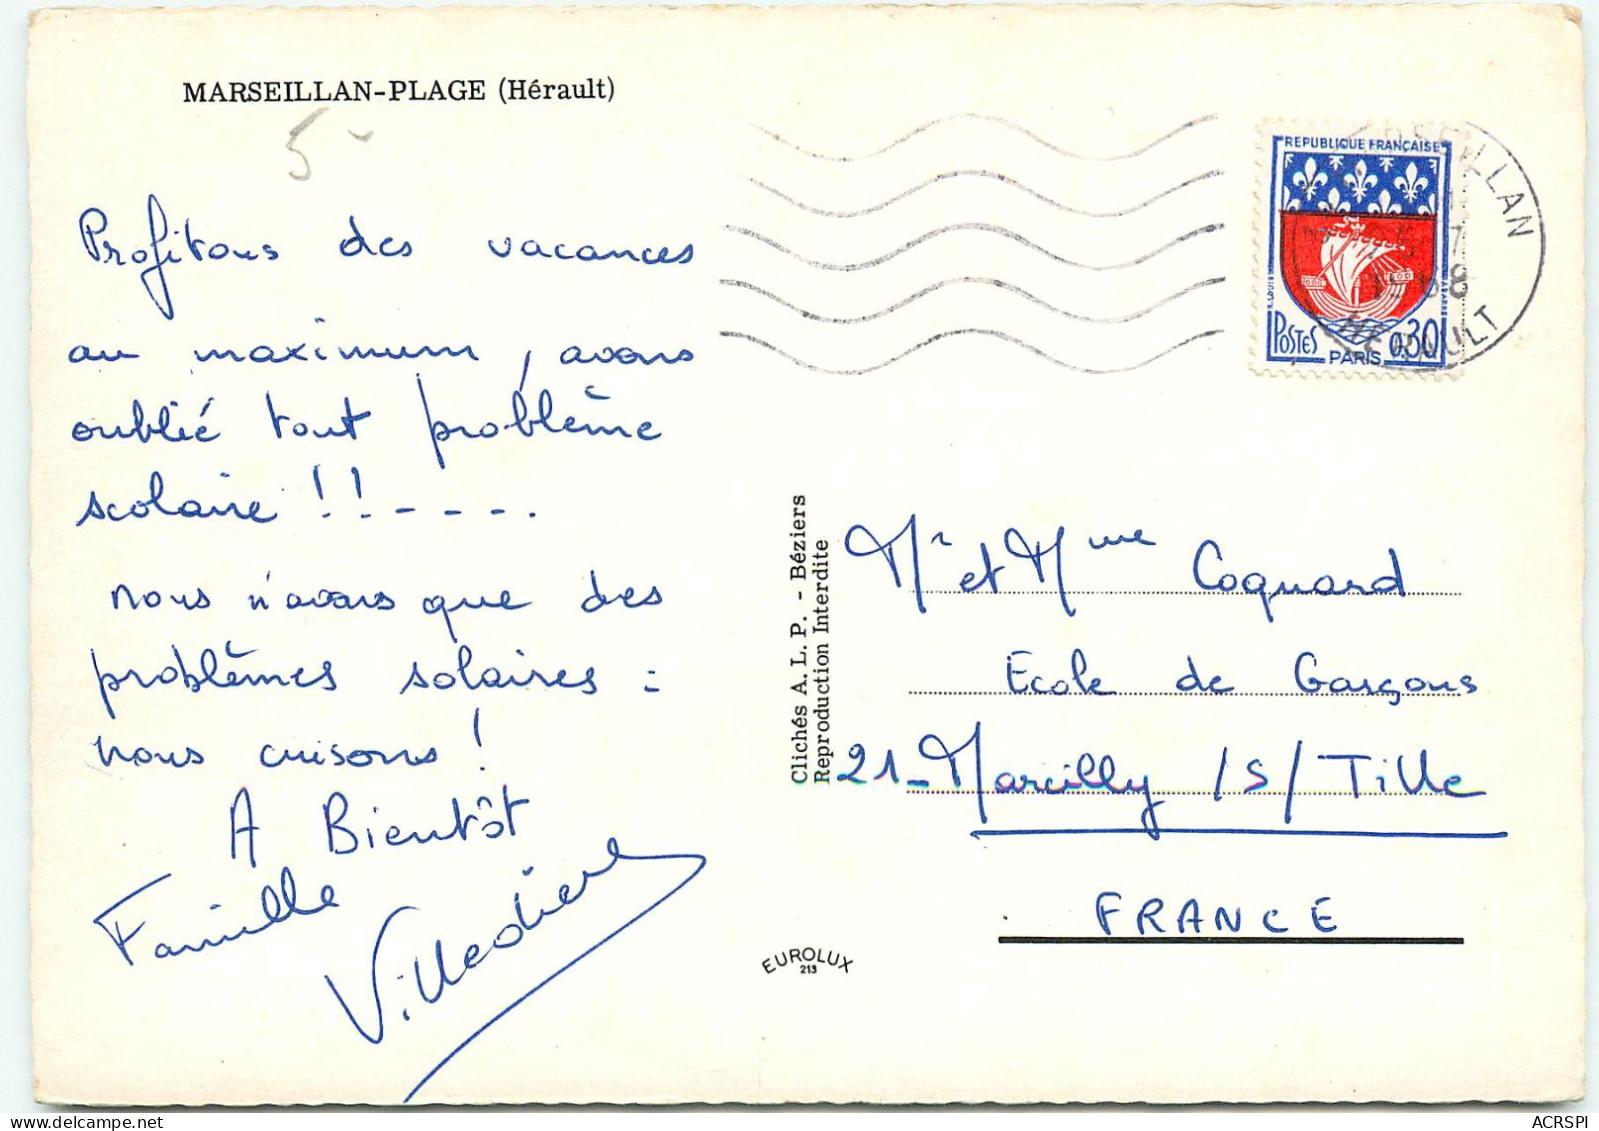 MARSEILLAN-PLAGE (Hérault)
5
Profitons des vacances
au maximum, avons
oublié tout problème
scolaire !! - - - -.
nous n'avons que des
problèmes solaires :
nous cuisons !
A Bientôt
Famille
REPUBLIQUE FRANÇAISE
POSTES 0,30
PARIS
MARSEILLAN
5 7
1968
HERAULT
Clichés A. L. P. - Béziers
Reproduction Interdite
Mr et Mme Coquard
Ecole de Garçons
21 - Marcilly /S/ Tille
FRANCE
EUROLUX
213
delcampe.net
ACRSPI